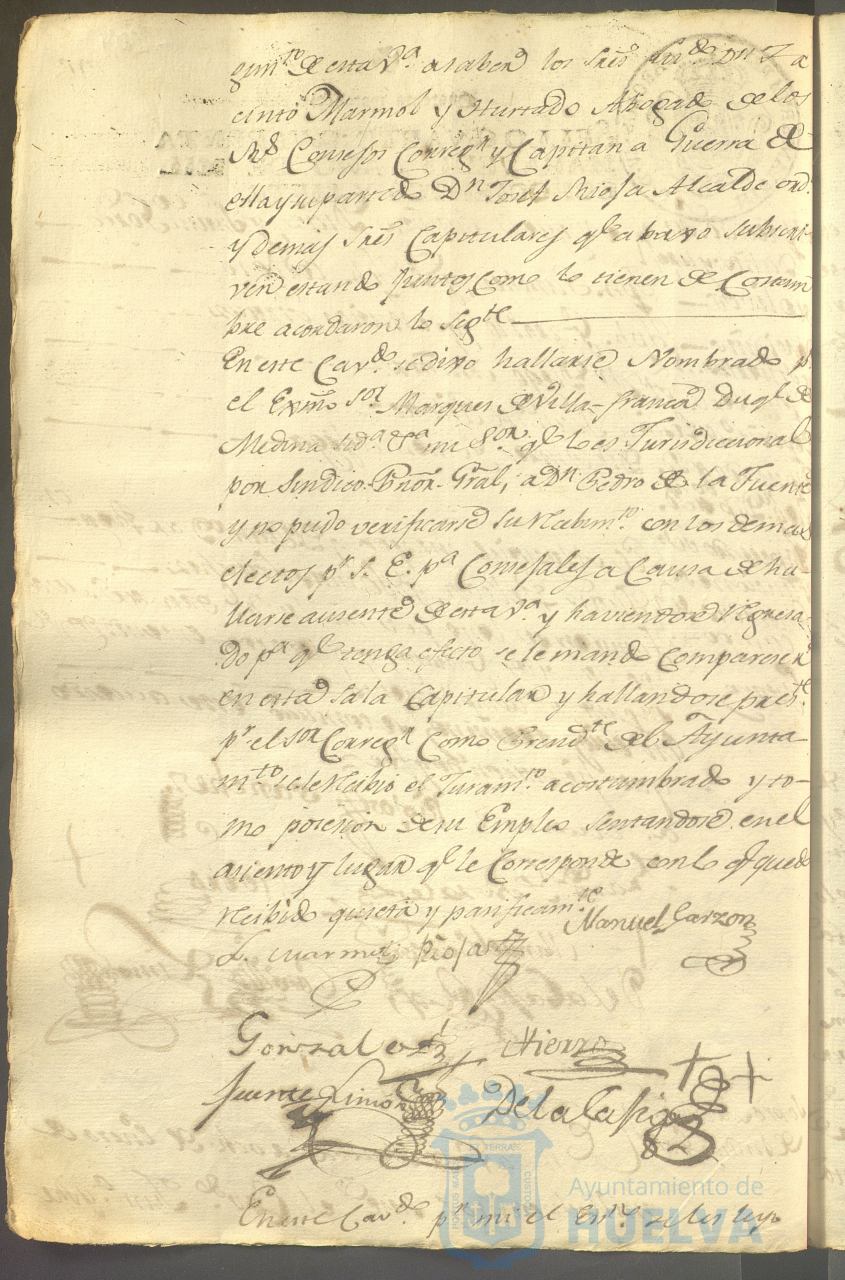 gim.to de esta V.a a saber los Sres Liz.do Dn Ja
cinto Marmol y Hurtado Abogado de los
R.s Consejos Correg.r y Capitan a Guerra de
ella y su partido Dn Josef Rioja Alcalde ord.
y demas Sres Capitulares q.e abaxo subscri-
ven estando juntos como lo tienen de Costum
bre acordaron lo Sig.te
En este Cav.do se dixo hallarse Nombrado p.r
el Exmo Sor Marques de Villa-franca Duq.e de
Medina Sid.a &.a mi S.or q.e lo es Jurisdiccional
por Sindico Pror Gral, a Dn Pedro de la Fuente
y no pudo verificarse su recibim.to con los demas
electos p.r S. E. p.a Consejales a Causa de ha-
llarse ausente de esta V.a y haviendose regresa-
do p.a q.e tenga efecto se le mando Comparecer
en esta Sala Capitular y hallandose pres.te
p.r el Sor Correg.r Como Presid.te del Ayunta-
m.to se le recibio el Juram.to acostumbrado y to-
mo posesion de su Empleo sentandose en el
asiento y lugar q.e le Corresponde con lo q.e quedo
recibido quieta y pasificam.te
Manuel Garzon
L. Marmol Rioja
Gonzalez Hierro
Fuente Limon De la Casa
En este Cav.do p.r mi el Es.no se les leyo
Ayuntamiento de
HUELVA